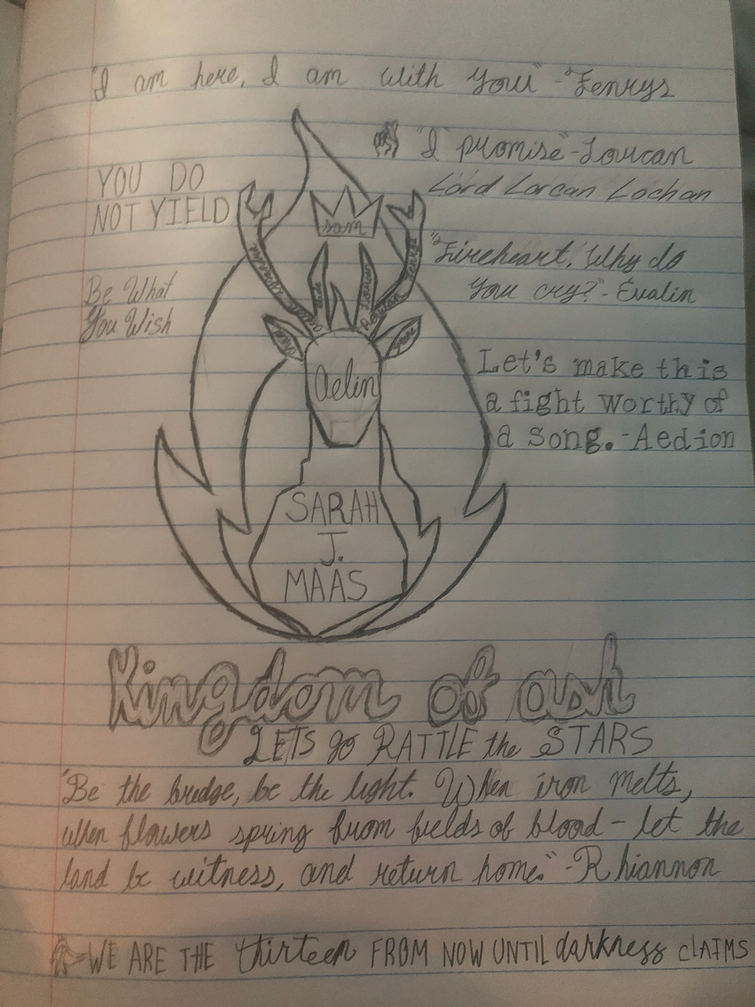 "I am here, I am with you" - "Fenrys
"I promise" - Lorcan
Lord Lorcan Lochan
YOU DO
NOT YIELD
sam
"Fireheart, Why do
you cry? - Evalin
Be What
You Wish
Rowan
Aelin
Let's make this
a fight worthy of
a song. - Aedion
SARAH
J.
MAAS
Kingdom of ash
LETS go RATTLE the STARS
"Be the bridge, be the light. When iron melts,
when flowers spring from fields of blood - let the
land be witness, and return home." - Rhiannon
WE ARE THE thirteen FROM NOW UNTIL darkness CLAIMS